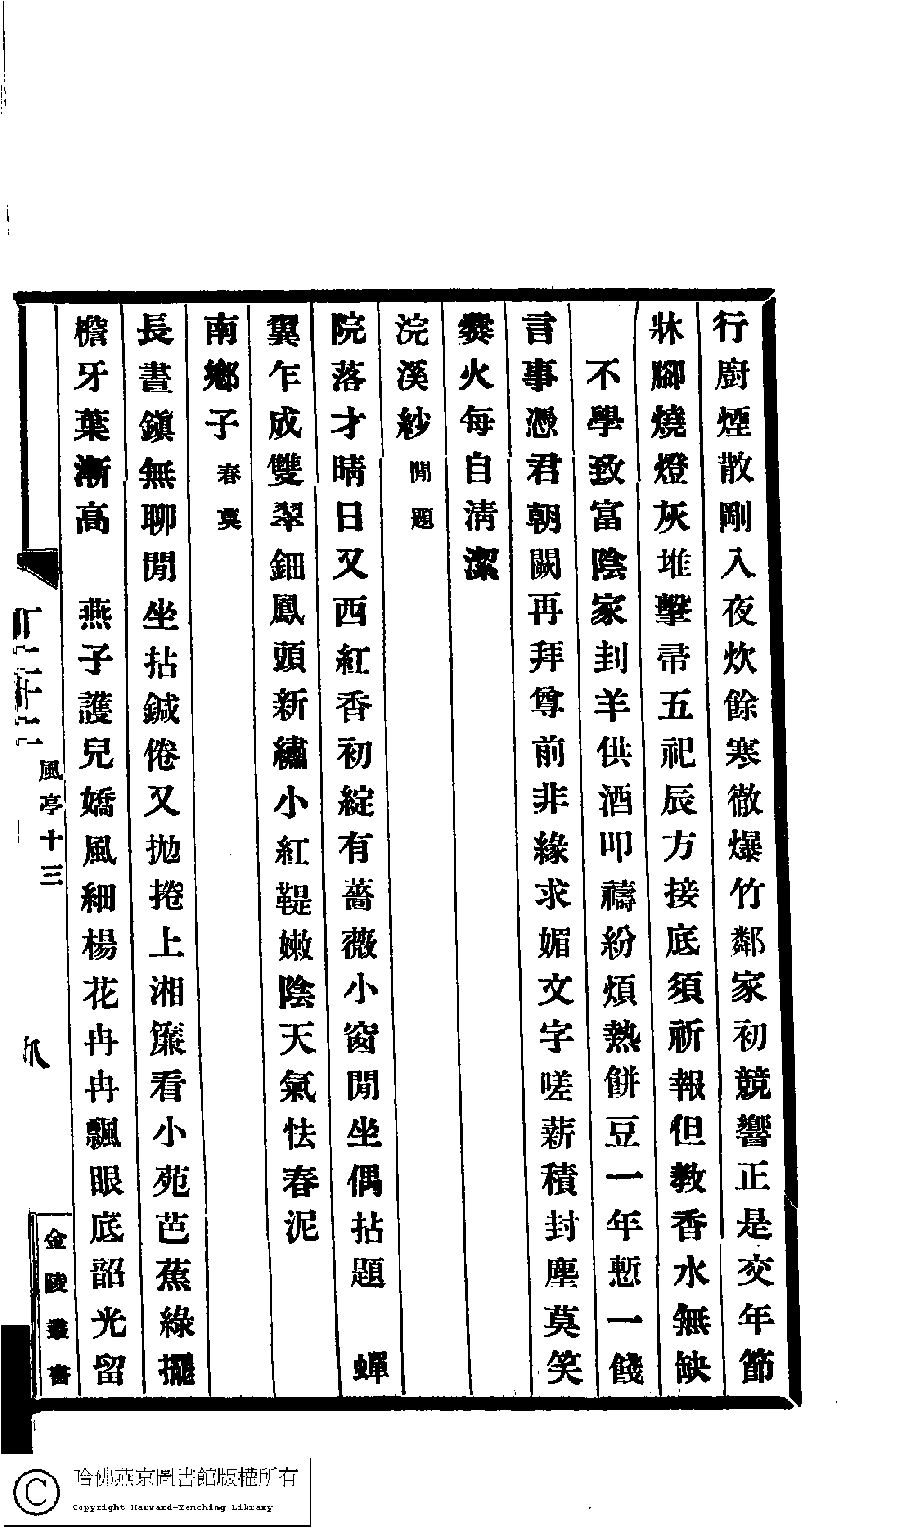 行廚煙散剛入夜炊餘寒徹爆竹鄰家初競響正是交年節
牀腳燒燈灰堆擊帚五祀辰方接底須祈報但教香水無缺
不學致富陰家刲羊供酒叩禱紛煩熱餅豆一年暫一餞
言事憑君朝闕再拜尊前非緣求媚文字嗟薪積封塵莫笑
爨火每自清潔
浣溪紗 閒題
院落才晴日又西紅香初綻有薔薇小窗閒坐偶拈題 蟬
翼乍成雙翠鈿鳳頭新繡小紅鞮嫩陰天氣怯春泥
南鄉子 春莫
長晝鎮無聊閒坐拈鍼倦又拋捲上湘簾看小苑芭蕉綠擺
檐牙葉漸高 燕子護兒嬌風細楊花冉冉飄眼底韶光留
風亭十三
金陵叢書
哈佛燕京圖書館版權所有
Copyright Harvard-Yenching Library